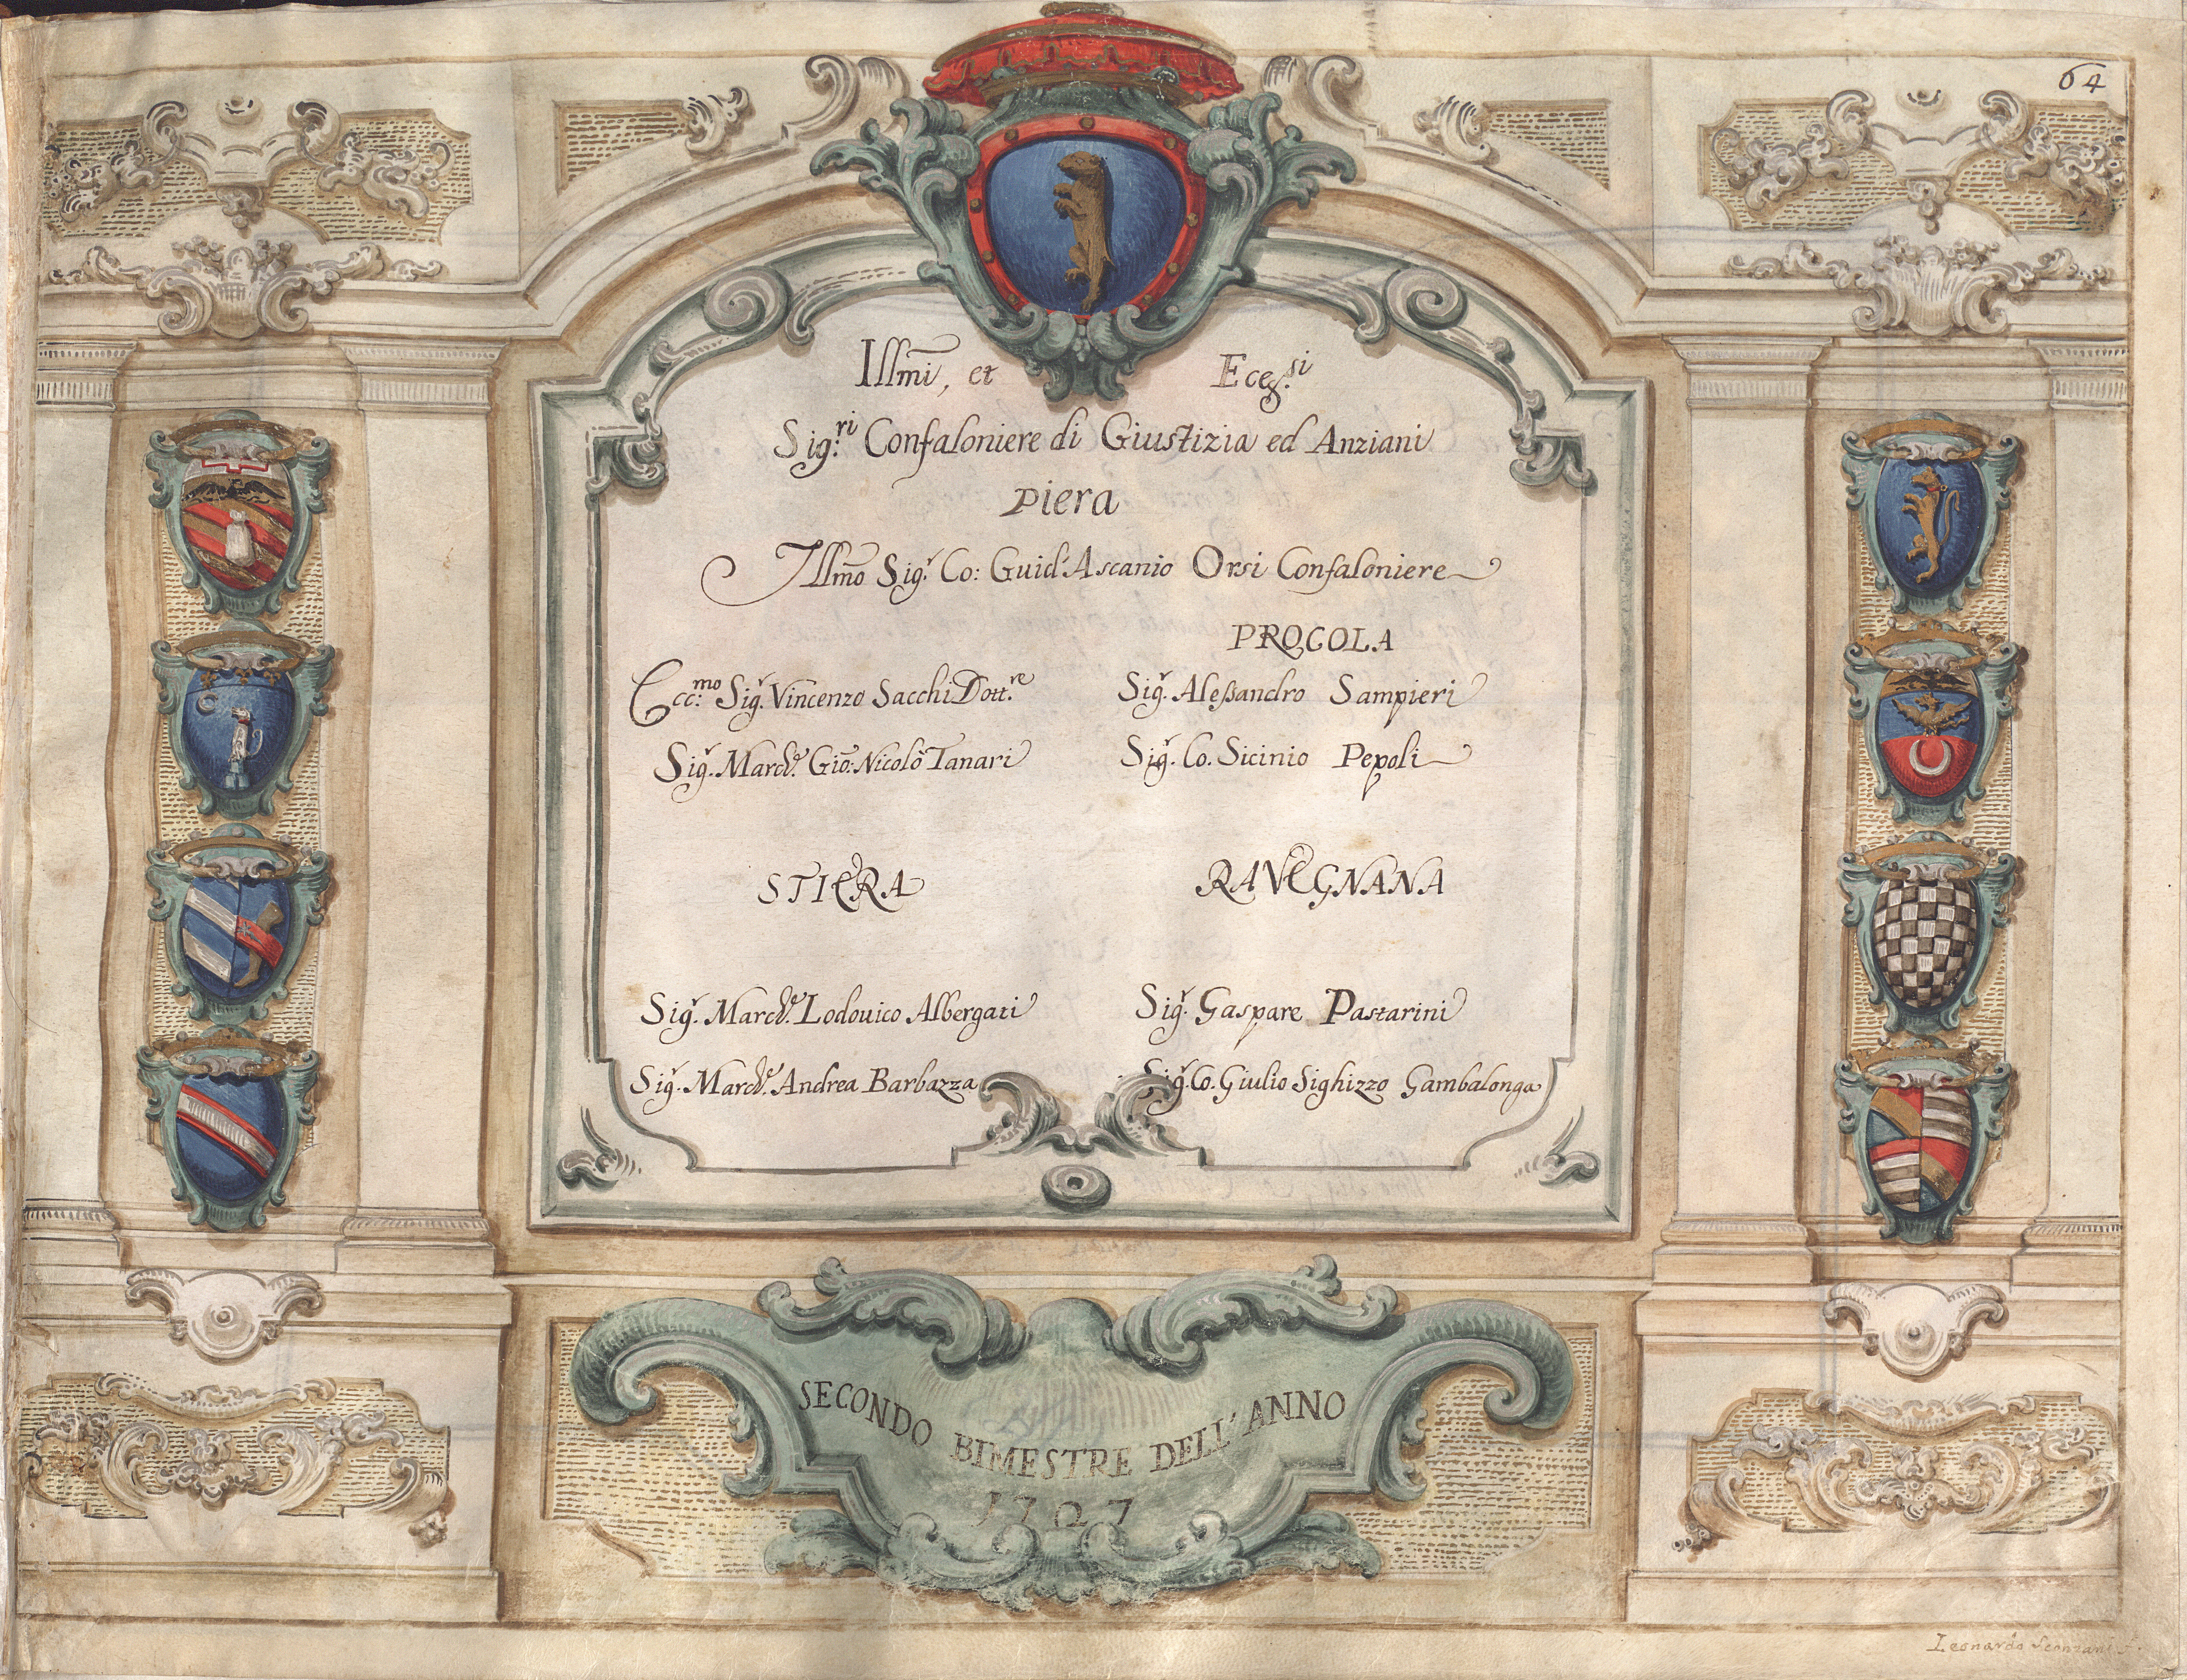 64
Illmi, et Ecçs.si
Sig.ri Confaloniere di Giustizia ed Anziani
Piera
Illmo Sig.r Co: Guid'Ascanio Orsi Confaloniere
PROCOLA
Ecc.mo Sig.r Vincenzo Sacchi Dott.re
Sig.r Aleßandro Sampieri
Sig.r March.e Gio: Nicolò Tanari
Sig.r Co. Sicinio Pepoli
STIERA
RAVEGNANA
Sig.r March.e Lodouico Albergati
Sig.r Gaspare Pastarini
Sig.r March.e Andrea Barbazza
Sig.r Co. Giulio Sighizzo Gambalonga
SECONDO BIMESTRE DELL'ANNO
1727
Leonardo Sconzani f.